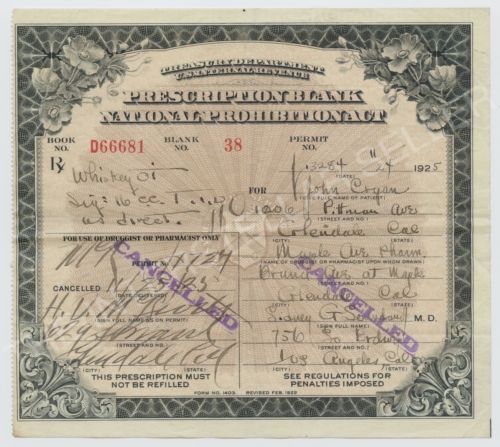 TREASURY DEPARTMENT
U.S. INTERNAL REVENUE
PRESCRIPTION BLANK
NATIONAL PROHIBITION ACT
BOOK NO. D66681 BLANK NO. 38 PERMIT NO.
13284 11 24 1925
(DATE)
Rx
Whiskey
FOR John
(FULL NAME OF PATIENT)
Sig: 16 cc
as direct. 1206 Pittman Ave
(STREET AND NO.)
Glendale Cal
(CITY) (STATE)
FOR USE OF DRUGGIST OR PHARMACIST ONLY
Maple Ave Pharm
(NAME OF DRUGGIST OR PHARMACIST UPON WHOM DRAWN)
PERMIT NO.
Brand Ave at Maple
(STREET AND NO.)
CANCELLED 11/24/25
(DATE) (STATE FILLED)
Glendale Cal
(CITY) (STATE)
Sidney G M.D.
(SIGN FULL NAME AS ON PERMIT) (SIGN FULL NAME)
756 S
(STREET AND NO.) (STREET AND NO.)
Glendale Cal Los Angeles Calif
(CITY) (STATE) (CITY) (STATE)
CANCELLED
CANCELLED
THIS PRESCRIPTION MUST NOT BE REFILLED
SEE REGULATIONS FOR PENALTIES IMPOSED
FORM NO. 1403 REVISED FEB. 1922